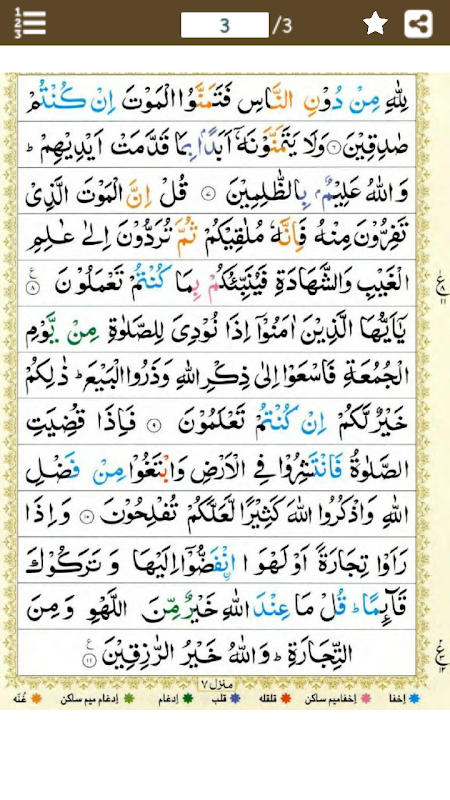 3 /3
لِلّٰهِ مِنْ دُوْنِ النَّاسِ فَتَمَنَّوُا الْمَوْتَ اِنْ كُنْتُمْ
صٰدِقِیْنَ ۝۶ وَلَا یَتَمَنَّوْنَهٗۤ اَبَدًۢا بِمَا قَدَّمَتْ اَیْدِیْهِمْ ؕ
وَاللّٰهُ عَلِیْمٌۢ بِالظّٰلِمِیْنَ ۝۷ قُلْ اِنَّ الْمَوْتَ الَّذِیْ
تَفِرُّوْنَ مِنْهُ فَاِنَّهٗ مُلٰقِیْكُمْ ثُمَّ تُرَدُّوْنَ اِلٰی عٰلِمِ
الْغَیْبِ وَالشَّهَادَةِ فَیُنَبِّئُكُمْ بِمَا كُنْتُمْ تَعْمَلُوْنَ ۝۸ ع
۱۱
یٰۤاَیُّهَا الَّذِیْنَ اٰمَنُوْۤا اِذَا نُوْدِیَ لِلصَّلٰوةِ مِنْ یَّوْمِ
الْجُمُعَةِ فَاسْعَوْا اِلٰی ذِكْرِ اللّٰهِ وَذَرُوا الْبَیْعَ ؕ ذٰلِكُمْ
خَیْرٌ لَّكُمْ اِنْ كُنْتُمْ تَعْلَمُوْنَ ۝۹ فَاِذَا قُضِیَتِ
الصَّلٰوةُ فَانْتَشِرُوْا فِی الْاَرْضِ وَابْتَغُوْا مِنْ فَضْلِ
اللّٰهِ وَاذْكُرُوا اللّٰهَ كَثِیْرًا لَّعَلَّكُمْ تُفْلِحُوْنَ ۝۱۰ وَاِذَا
رَاَوْا تِجَارَةً اَوْ لَهْوَا اِنْفَضُّوْۤا اِلَیْهَا وَتَرَكُوْكَ
قَآىِٕمًا ؕ قُلْ مَا عِنْدَ اللّٰهِ خَیْرٌ مِّنَ اللَّهْوِ وَمِنَ
التِّجَارَةِ ؕ وَاللّٰهُ خَیْرُ الرّٰزِقِیْنَ ۝۱۱ ع
۱۲
منزل ۷
اِخفا اِخفامیم ساکن قلقله قلب اِدغام اِدغام میم ساکن غُنّه